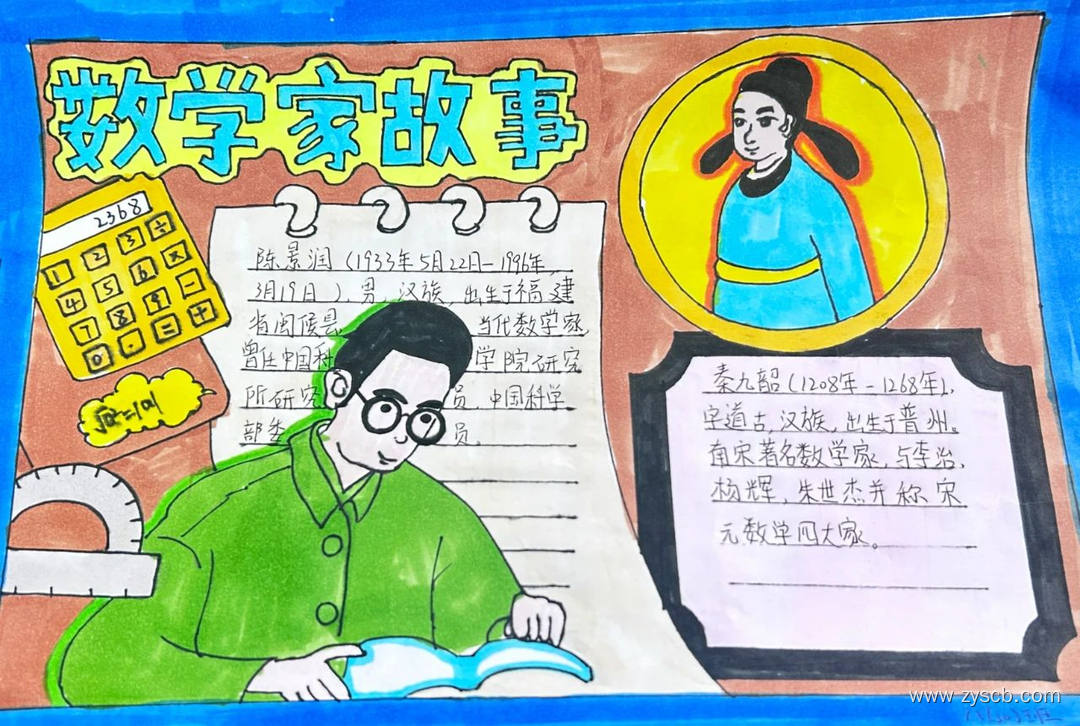 数学家故事
2368
1 2 3 ÷
4 5 6 ×
7 8 9 －
0 . = +
陈景润（1933年5月22日－1996年
3月19日），男，汉族，出生于福建
省闽侯县 当代数学家，
曾任中国科 学院研究
所研究 员，中国科学
部委 员。
秦九韶（1208年－1268年），
字道古，汉族，出生于普州。
南宋著名数学家，与李冶、
杨辉，朱世杰并称宋
元数学四大家。
www.zyscb.com